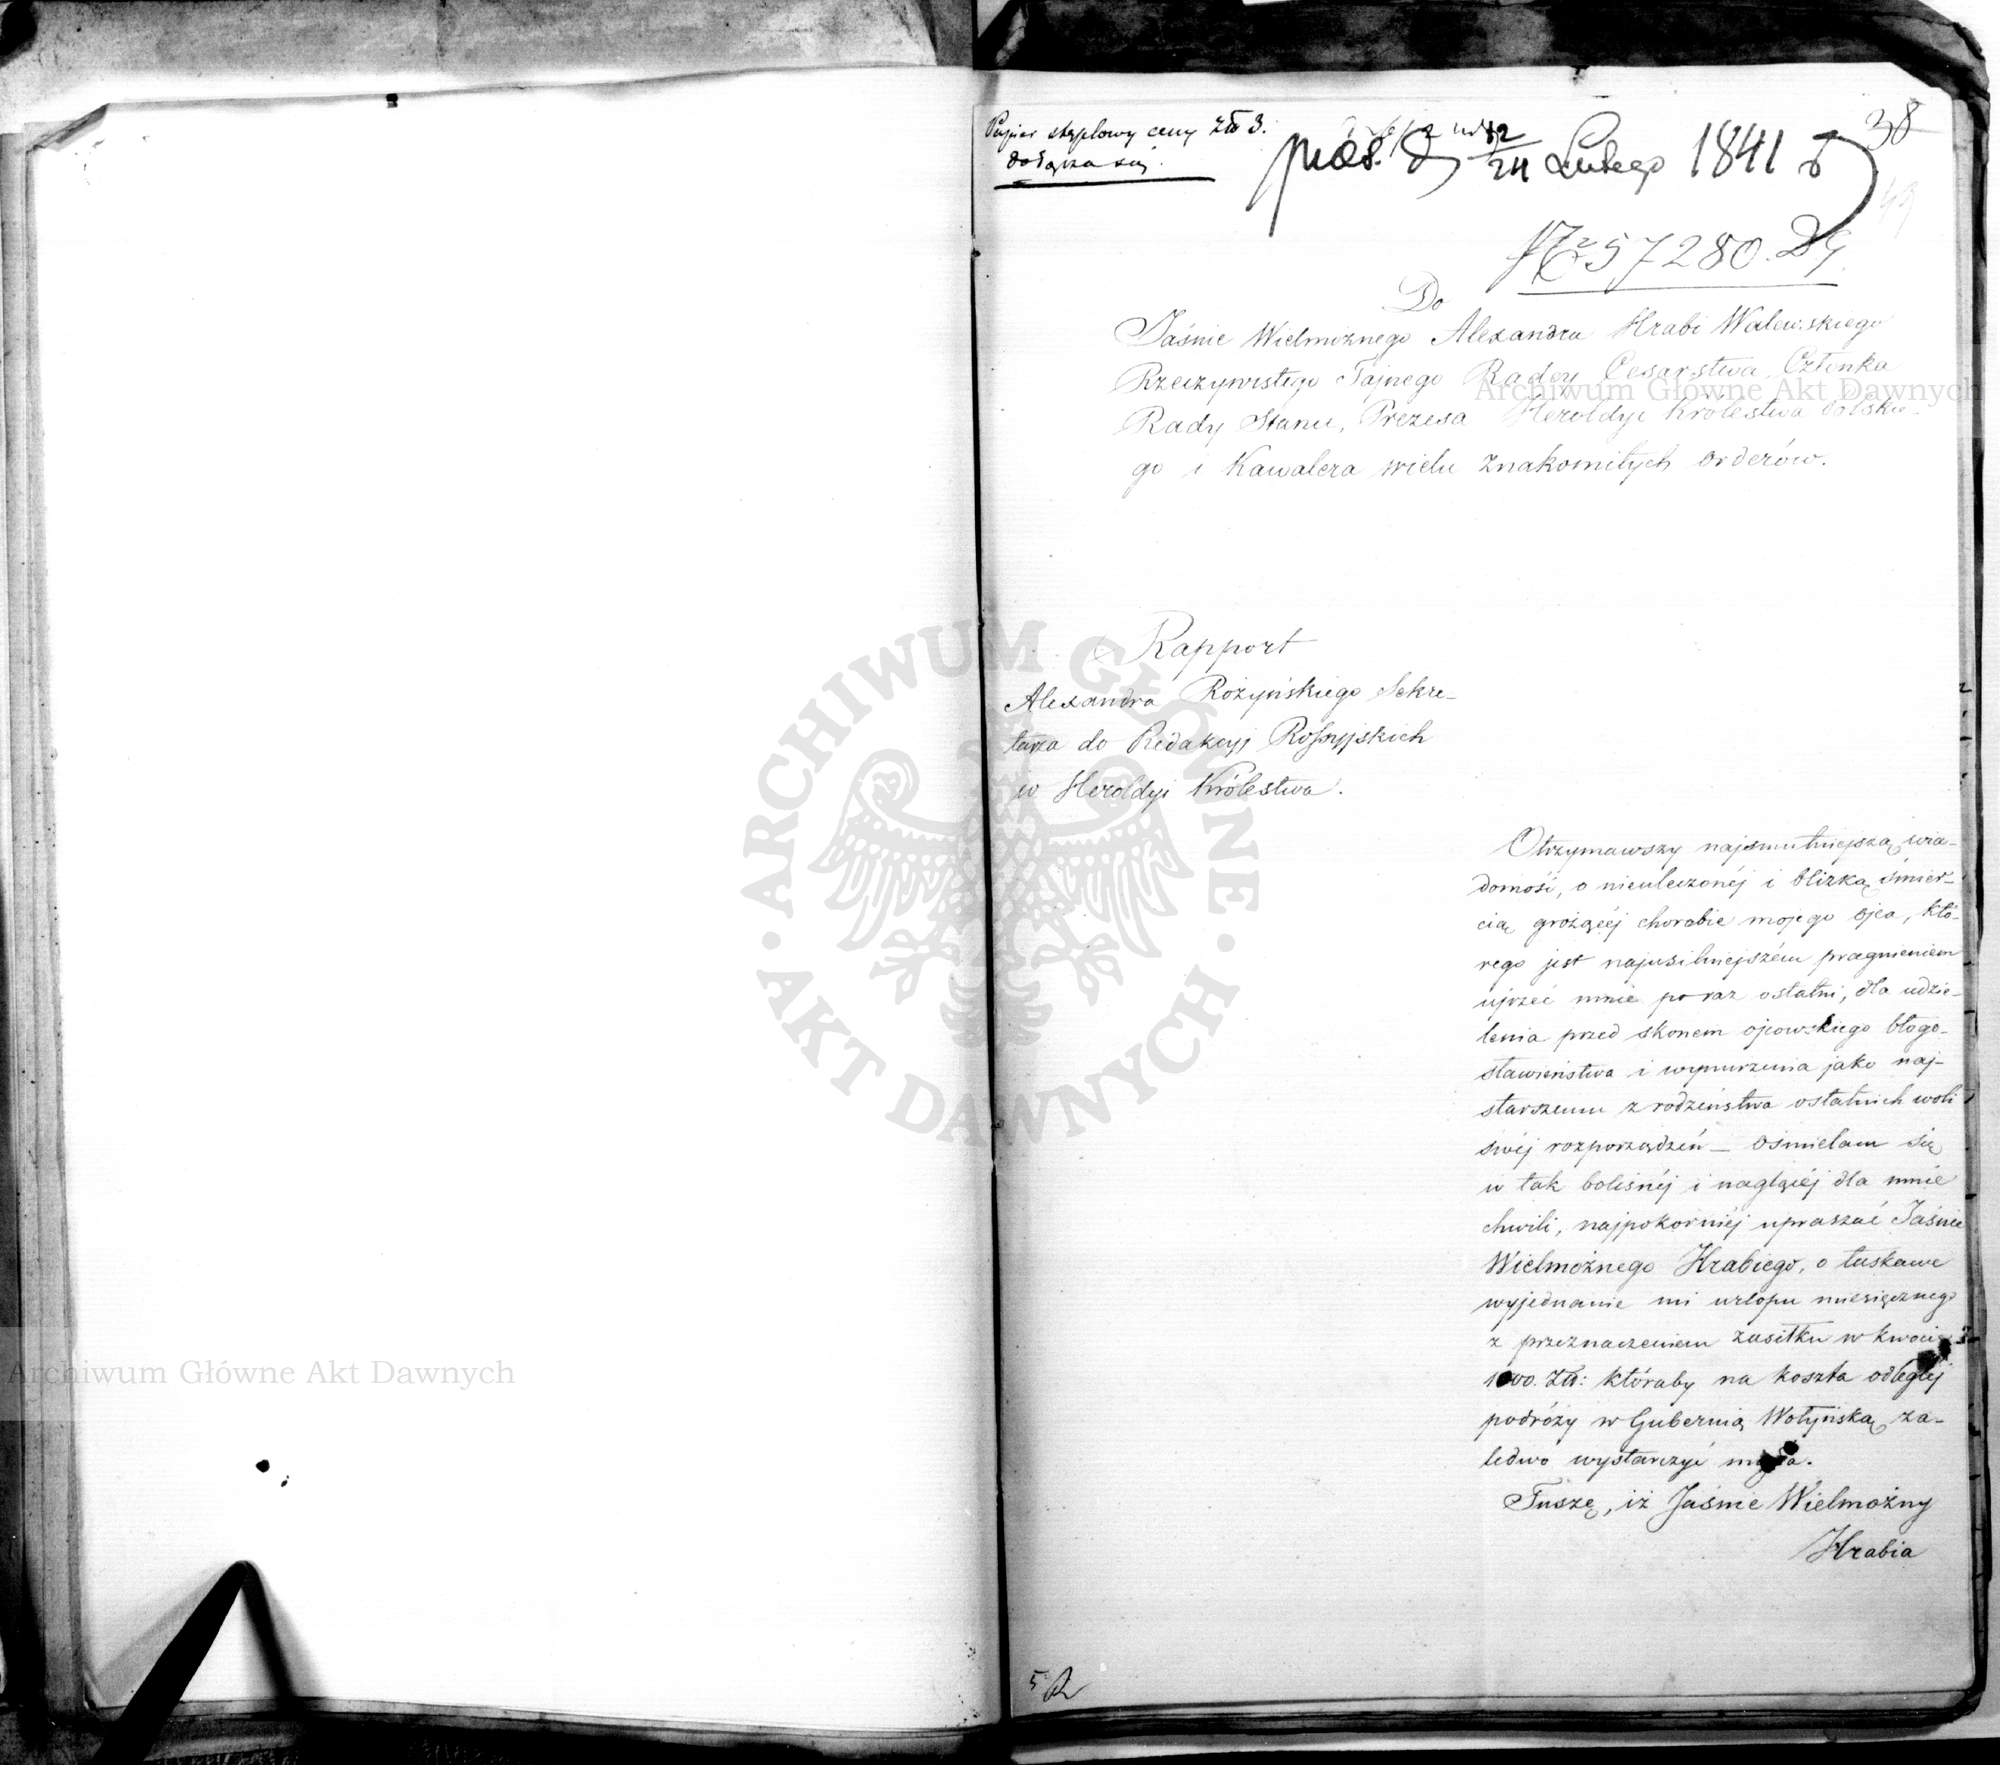 Papier stęplowy ceny Złł 3.
dołącza się.
38
præs. D 12/24 Lutego 1841 r
№ 57280. DG.
Do
Jaśnie Wielmożnego Alexandra Hrabi Walewskiego
Rzeczywistego Tajnego Radcy Cesarstwa, Członka
Rady Stanu, Prezesa Heroldyi Królestwa Polskie-
go i Kawalera wielu znakomitych orderów.
Rapport
Alexandra Rożyńskiego Sekre-
tarza do Redakcyj Rossyjskich
w Heroldyi Królestwa.
Otrzymawszy najsmutniejszą wia-
domość, o nieuleczonéj i blizką śmier-
cią grożącéj chorobie mojego ojca, któ-
rego jest najusilniejszém pragnieniem
ujrzeć mnie po raz ostatni, dla udzie-
lenia przed skonem ojcowskiego błogo-
sławieństwa i wynurzenia jako naj-
starszemu z rodzeństwa ostatnich woli
swéj rozporządzeń — ośmielam się
w tak bolesnéj i naglącéj dla mnie
chwili, najpokorniéj upraszać Jaśnie
Wielmożnego Hrabiego, o łaskawe
wyjednanie mi urlopu miesięcznego
z przeznaczeniem zasiłku w kwocie
1000. Złł: któraby na koszta odległéj
podróży w Gubernią Wołyńską za-
ledwo wystarczyć mogła.
Tuszę, iż Jaśnie Wielmożny
Hrabia
5
Archiwum Główne Akt Dawnych
ARCHIWUM GŁÓWNE AKT DAWNYCH
Archiwum Główne Akt Dawnych